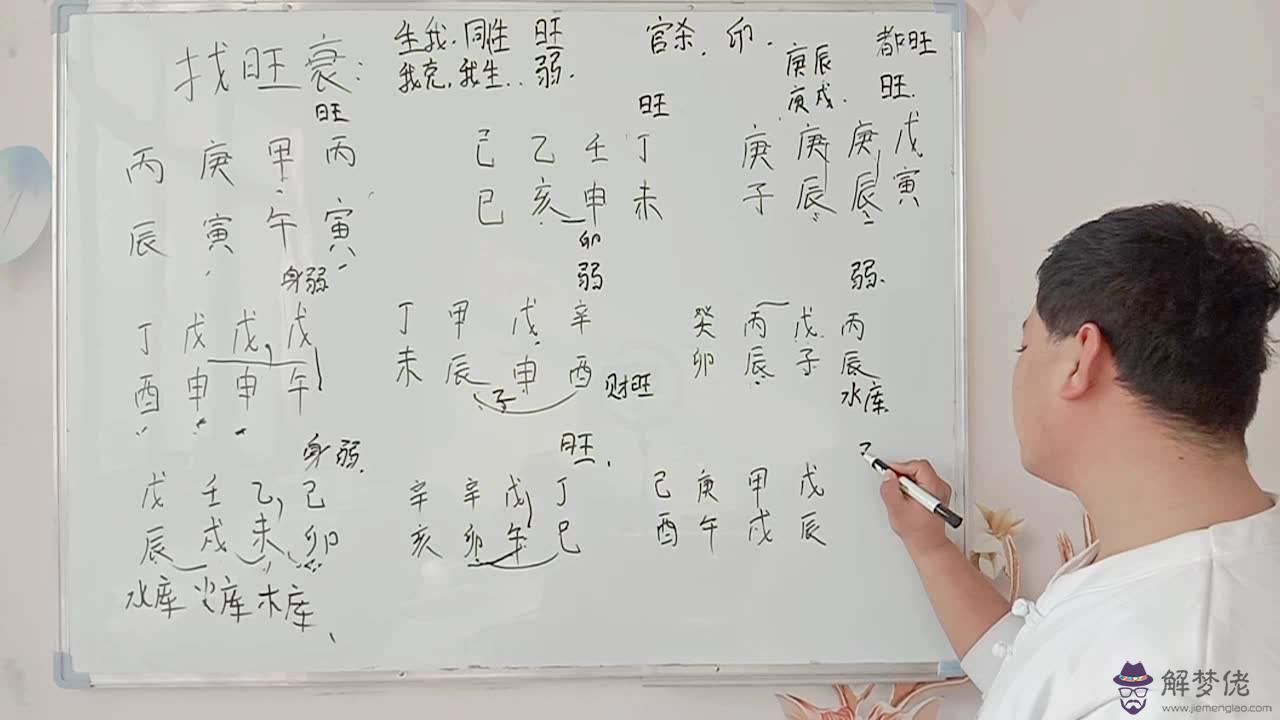 找旺衰:
生我.同性 旺
我克,我生.. 弱.
官杀. 卯.
庚辰
庚戌.
都旺
旺.
旺
丙 庚 甲 丙
辰 寅 午 寅
旺
己 乙 壬 丁
巳 亥 申 未
卯
庚 庚 庚 戊
子 辰 辰 寅
身弱
丁 戊 戊 戊
酉 申 申 午
弱
丁 甲 戊 辛
未 辰 申 酉
子
财旺
弱.
癸 丙 戊 丙
卯 辰 子 辰
水库
身弱.
戊 壬 乙 己
辰 戌 未 卯
水库 火库 木库
旺.
辛 辛 戊 丁
亥 卯 午 巳
己 庚 甲 戊
酉 午 戌 辰
解梦佬
www.jiemenglao.com